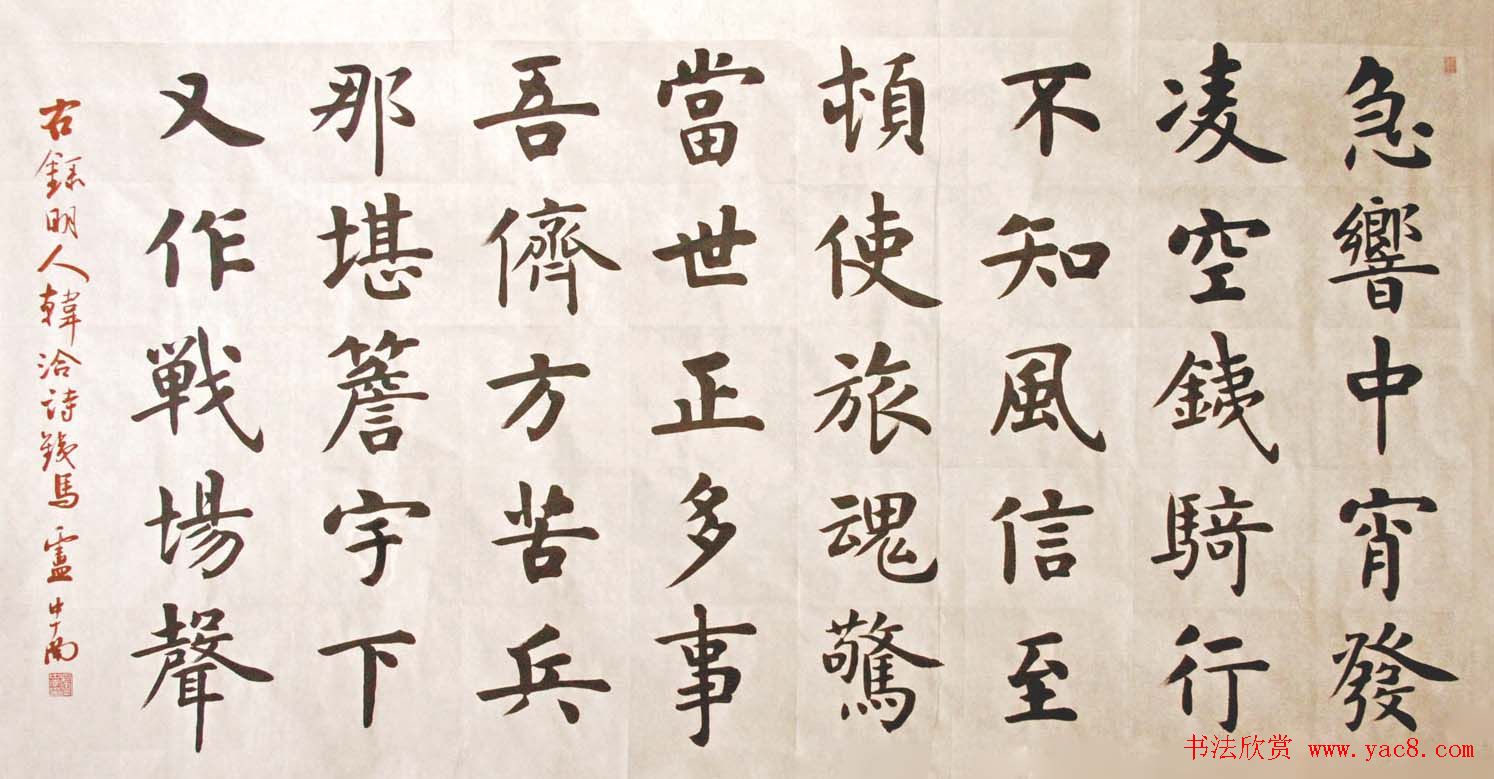 急響中宵發
凌空銕騎行
不知風信至
頓使旅魂驚
當世正多事
吾儕方苦兵
那堪簷宇下
又作戰場聲
右錄明人韓洽詩銕馬 盧中南
书法欣赏 www.yac8.com